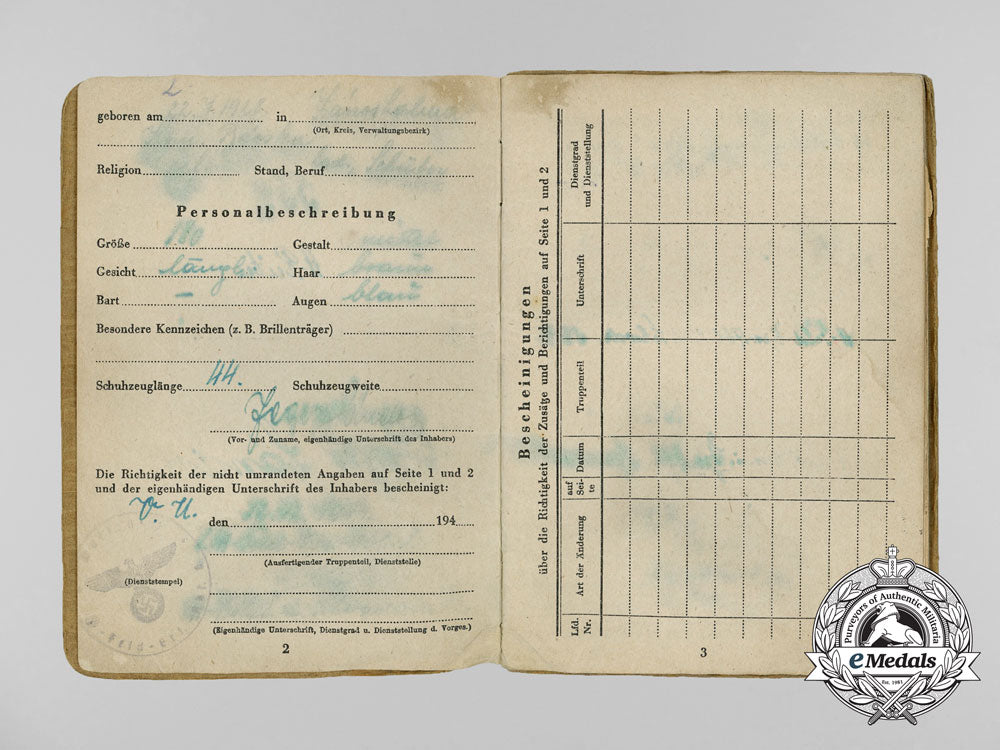 geboren am in
(Ort, Kreis, Verwaltungsbezirk)
Religion Stand, Beruf
Personalbeschreibung
Größe 180 Gestalt
Gesicht längl. Haar braun
Bart – Augen blau
Besondere Kennzeichen (z. B. Brillenträger)
Schuhzeuglänge 44. Schuhzeugweite
(Vor- und Zuname, eigenhändige Unterschrift des Inhabers)
Die Richtigkeit der nicht umrandeten Angaben auf Seite 1 und 2
und der eigenhändigen Unterschrift des Inhabers bescheinigt:
V. U. den 194
(Ausfertigender Truppenteil, Dienststelle)
(Dienststempel)
(Eigenhändige Unterschrift, Dienstgrad u. Dienststellung d. Vorges.)
2
Bescheinigungen
über die Richtigkeit der Zusätze und Berichtigungen auf Seite 1 und 2
Lfd. Nr.
Art der Änderung
auf Sei-
te
Datum
Truppenteil
Unterschrift
Dienstgrad
und Dienststellung
3
Purveyors of Authentic Militaria
eMedals
Est. 1981